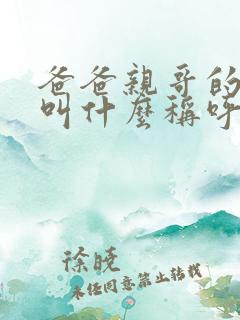 爸爸親哥的
叫什麼稱呼
徐曉
未经同意禁止转载